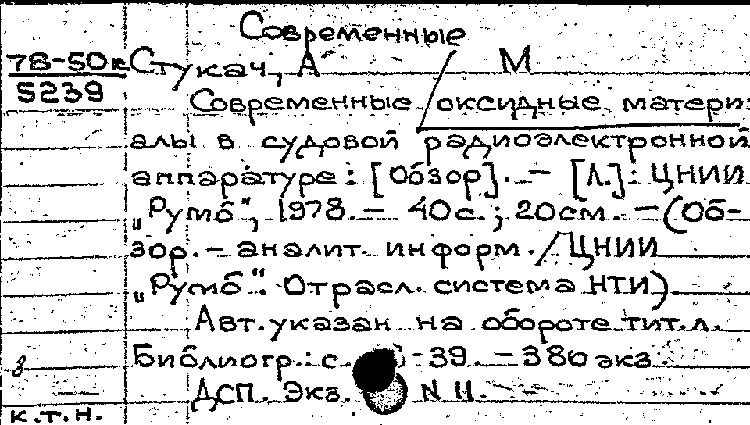 Современные
78-50к Стукач, А М
5239
Современные оксидные матери-
алы в судовой радиоэлектронной
аппаратуре: [Обзор]. — [Л.]: ЦНИИ
„Румб“, 1978. — 40с.; 20см. — (Об-
зор. – аналит. информ. / ЦНИИ
„Румб“. Отрасл. система НТИ).
Авт. указан на обороте тит. л.
Библиогр.: с. -39. — 380 экз.
ДСП. Экз. N 11.
к.т.н.